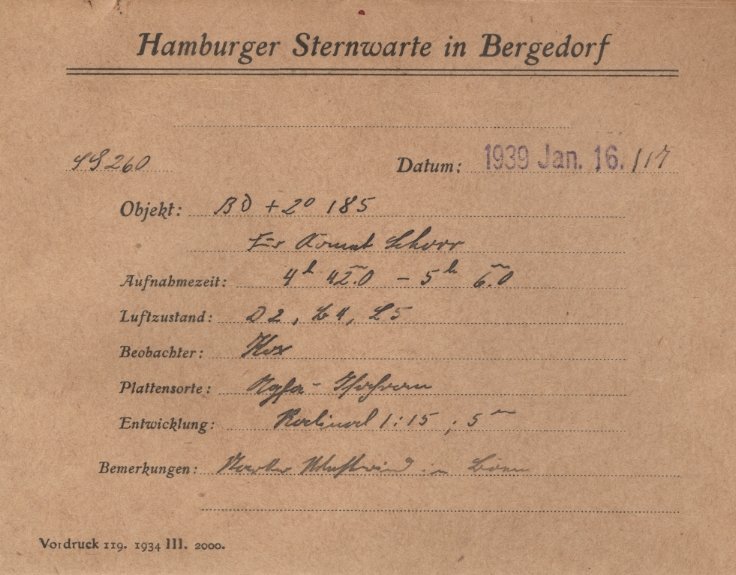 Hamburger Sternwarte in Bergedorf
SS 260
Datum: 1939 Jan. 16./17
Objekt: BD + 2° 185
Für Komet Schorr
Aufnahmezeit: 4h 42m.0 – 5h 6m.0
Luftzustand: D 2, L 4, L 5
Beobachter: Kox
Plattensorte: Agfa-
Entwicklung: Rodinal 1:15 ; 5m
Bemerkungen: Starker in Böen
Vordruck 119. 1934 III. 2000.